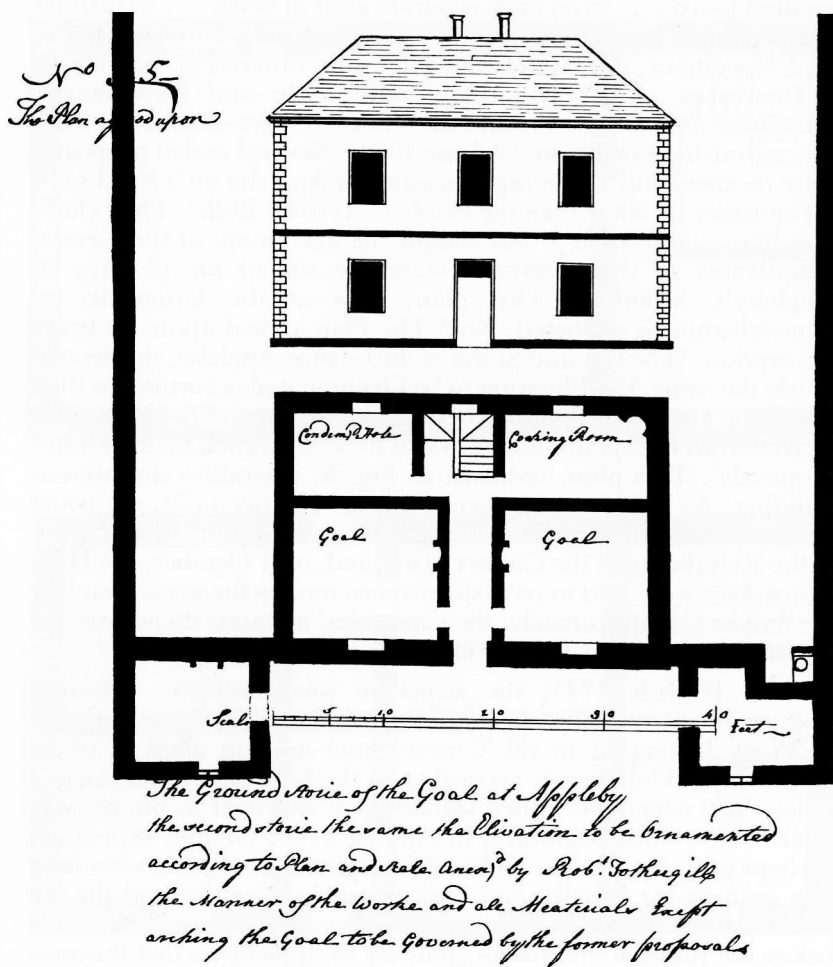 No 5
The Plan agreed upon
Condemd Hole
Cooking Room
Goal
Goal
Seal
5 10 20 30 40
Feet
The Ground storie of the Goal at Appleby
the second storie the same the Elivation to be Ornamented
according to Plan and Rale Anexd by Robt. Fothergill
the Manner of the Worke and all Meaterials Exept
arching the Goal to be Governed by the former proposals